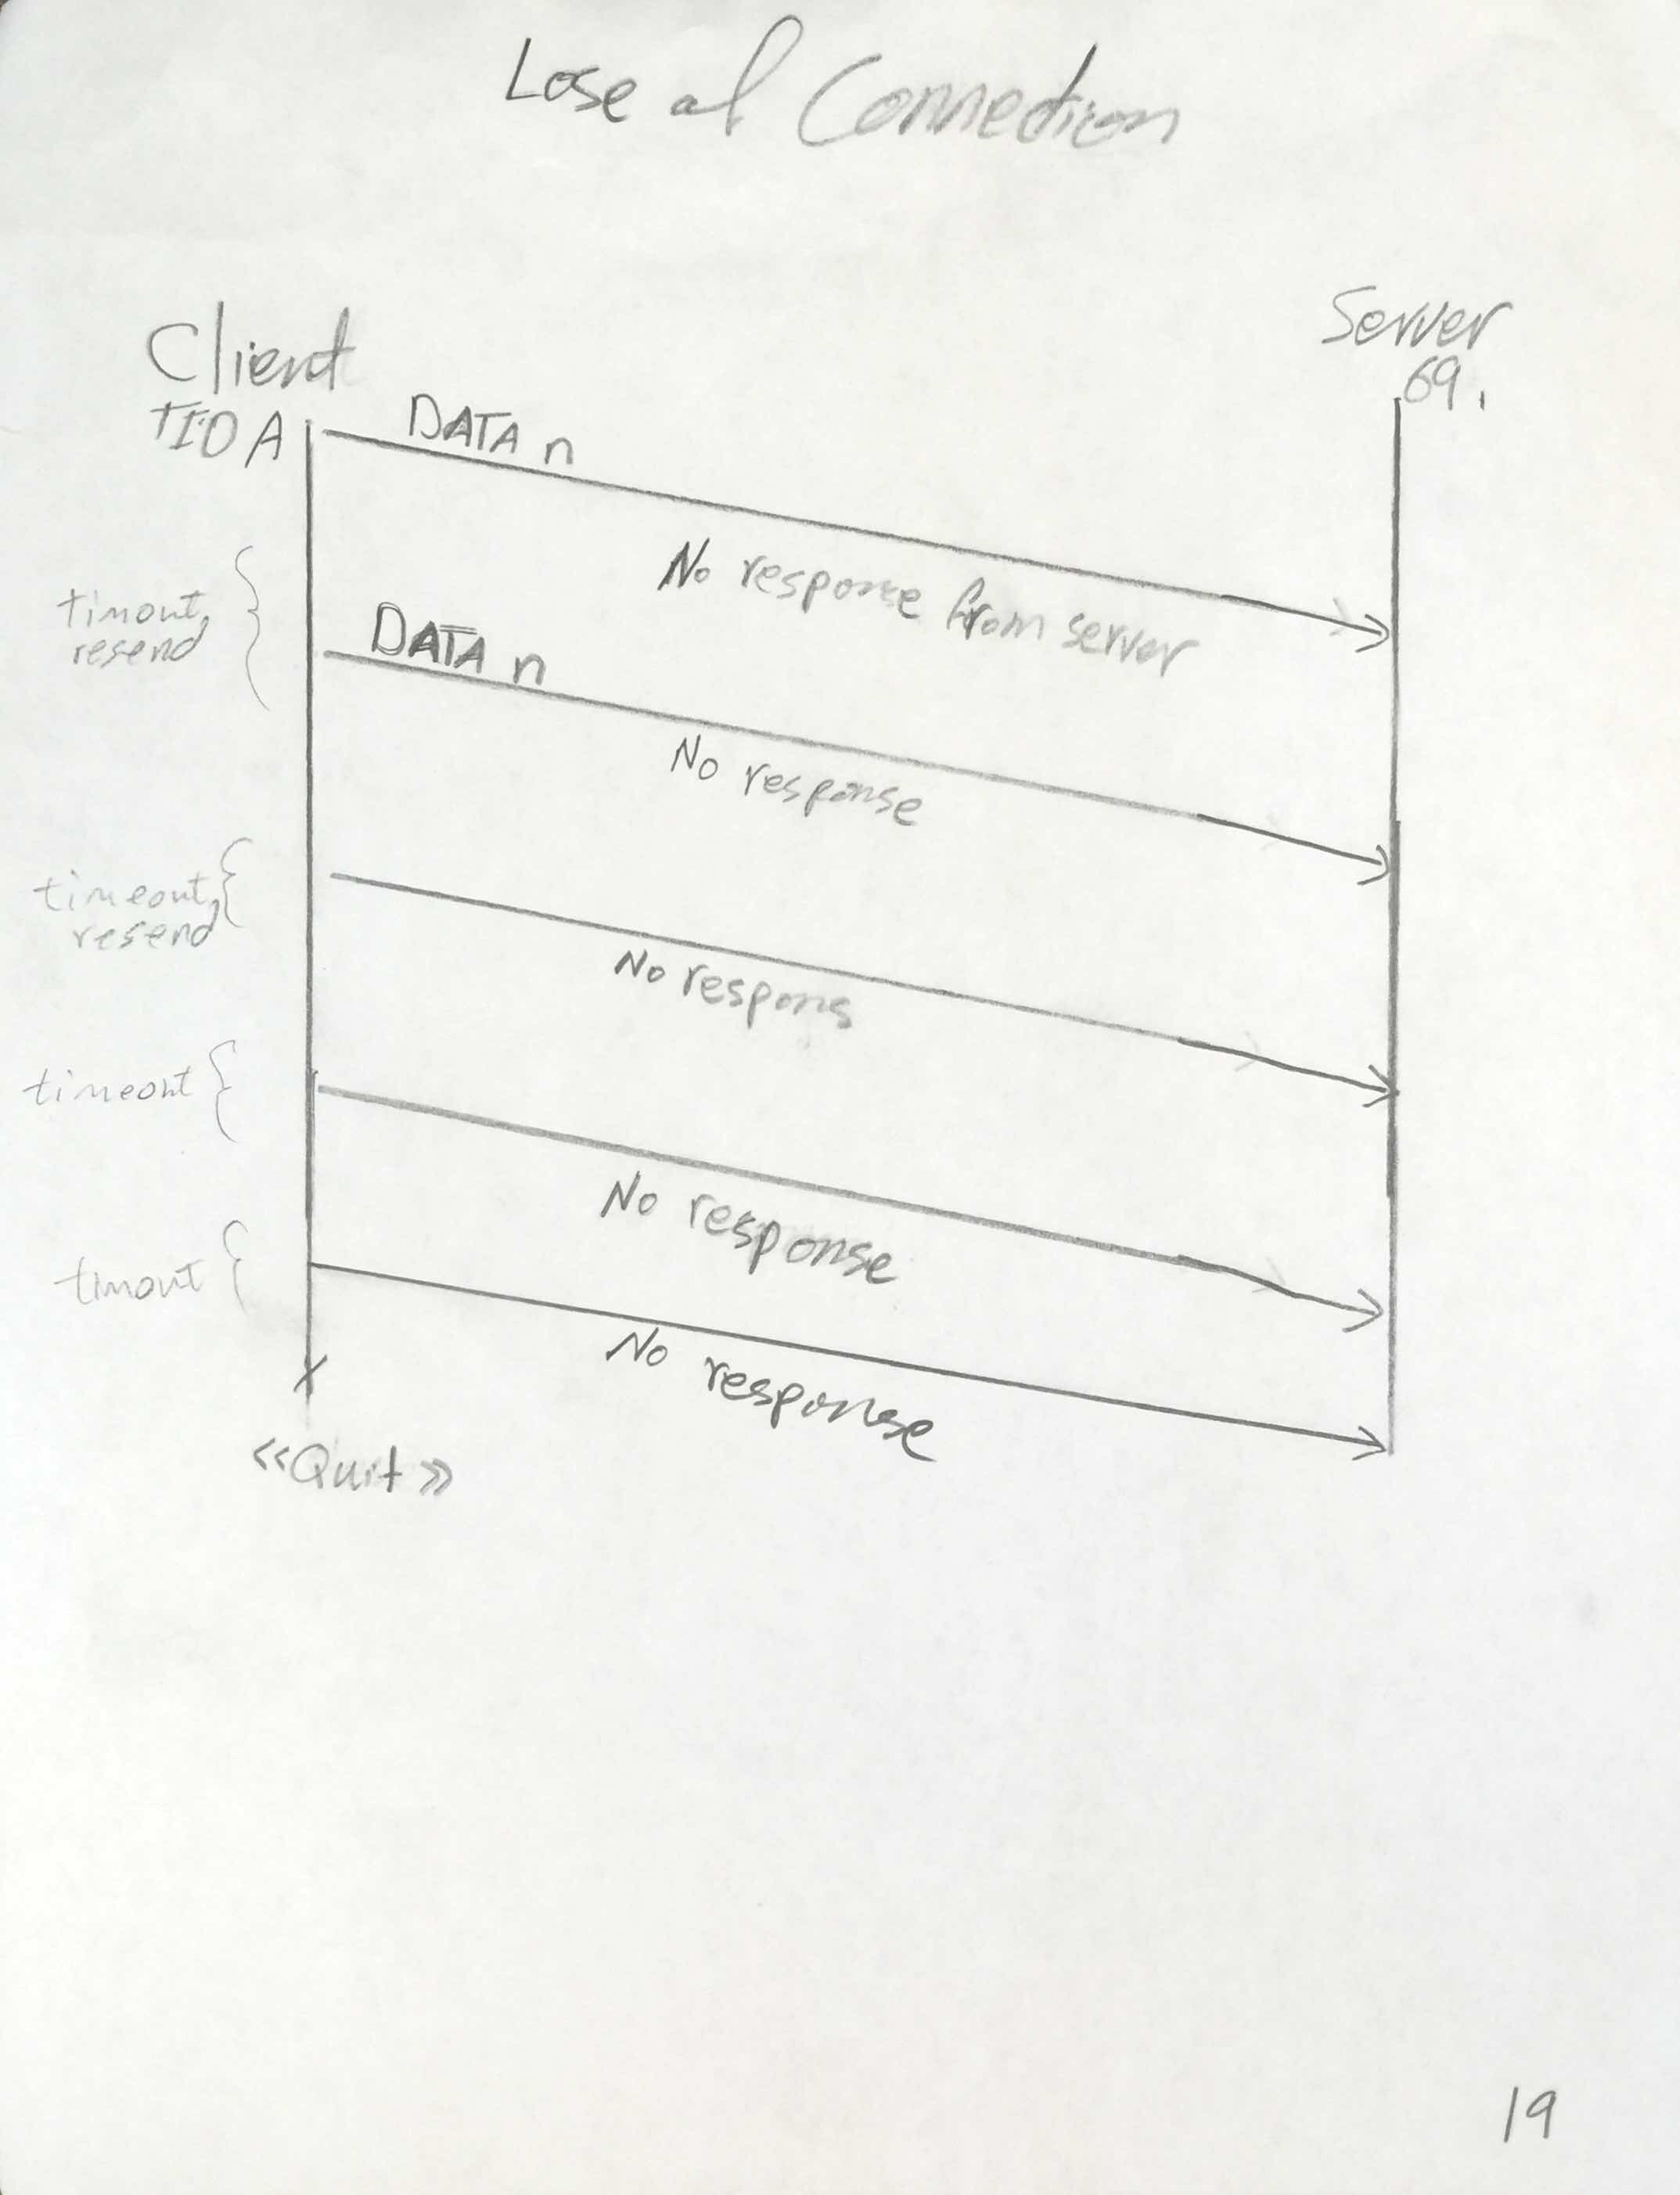 Lose of Connection
Client
TID A
Server
69.
DATA n
No response from server
timout,
resend
DATA n
No response
timeout,
resend
No respons
timeout
No response
timout
No response
«Quit»
19